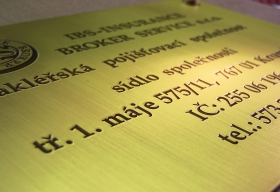 IBS-INSURANCE
BROKER SERVICE s.r.o.
makléřská pojišťovací společnost
sídlo společnosti
tř. 1. máje 575/11, 767 01
IČ: 255 06
tel.: 573